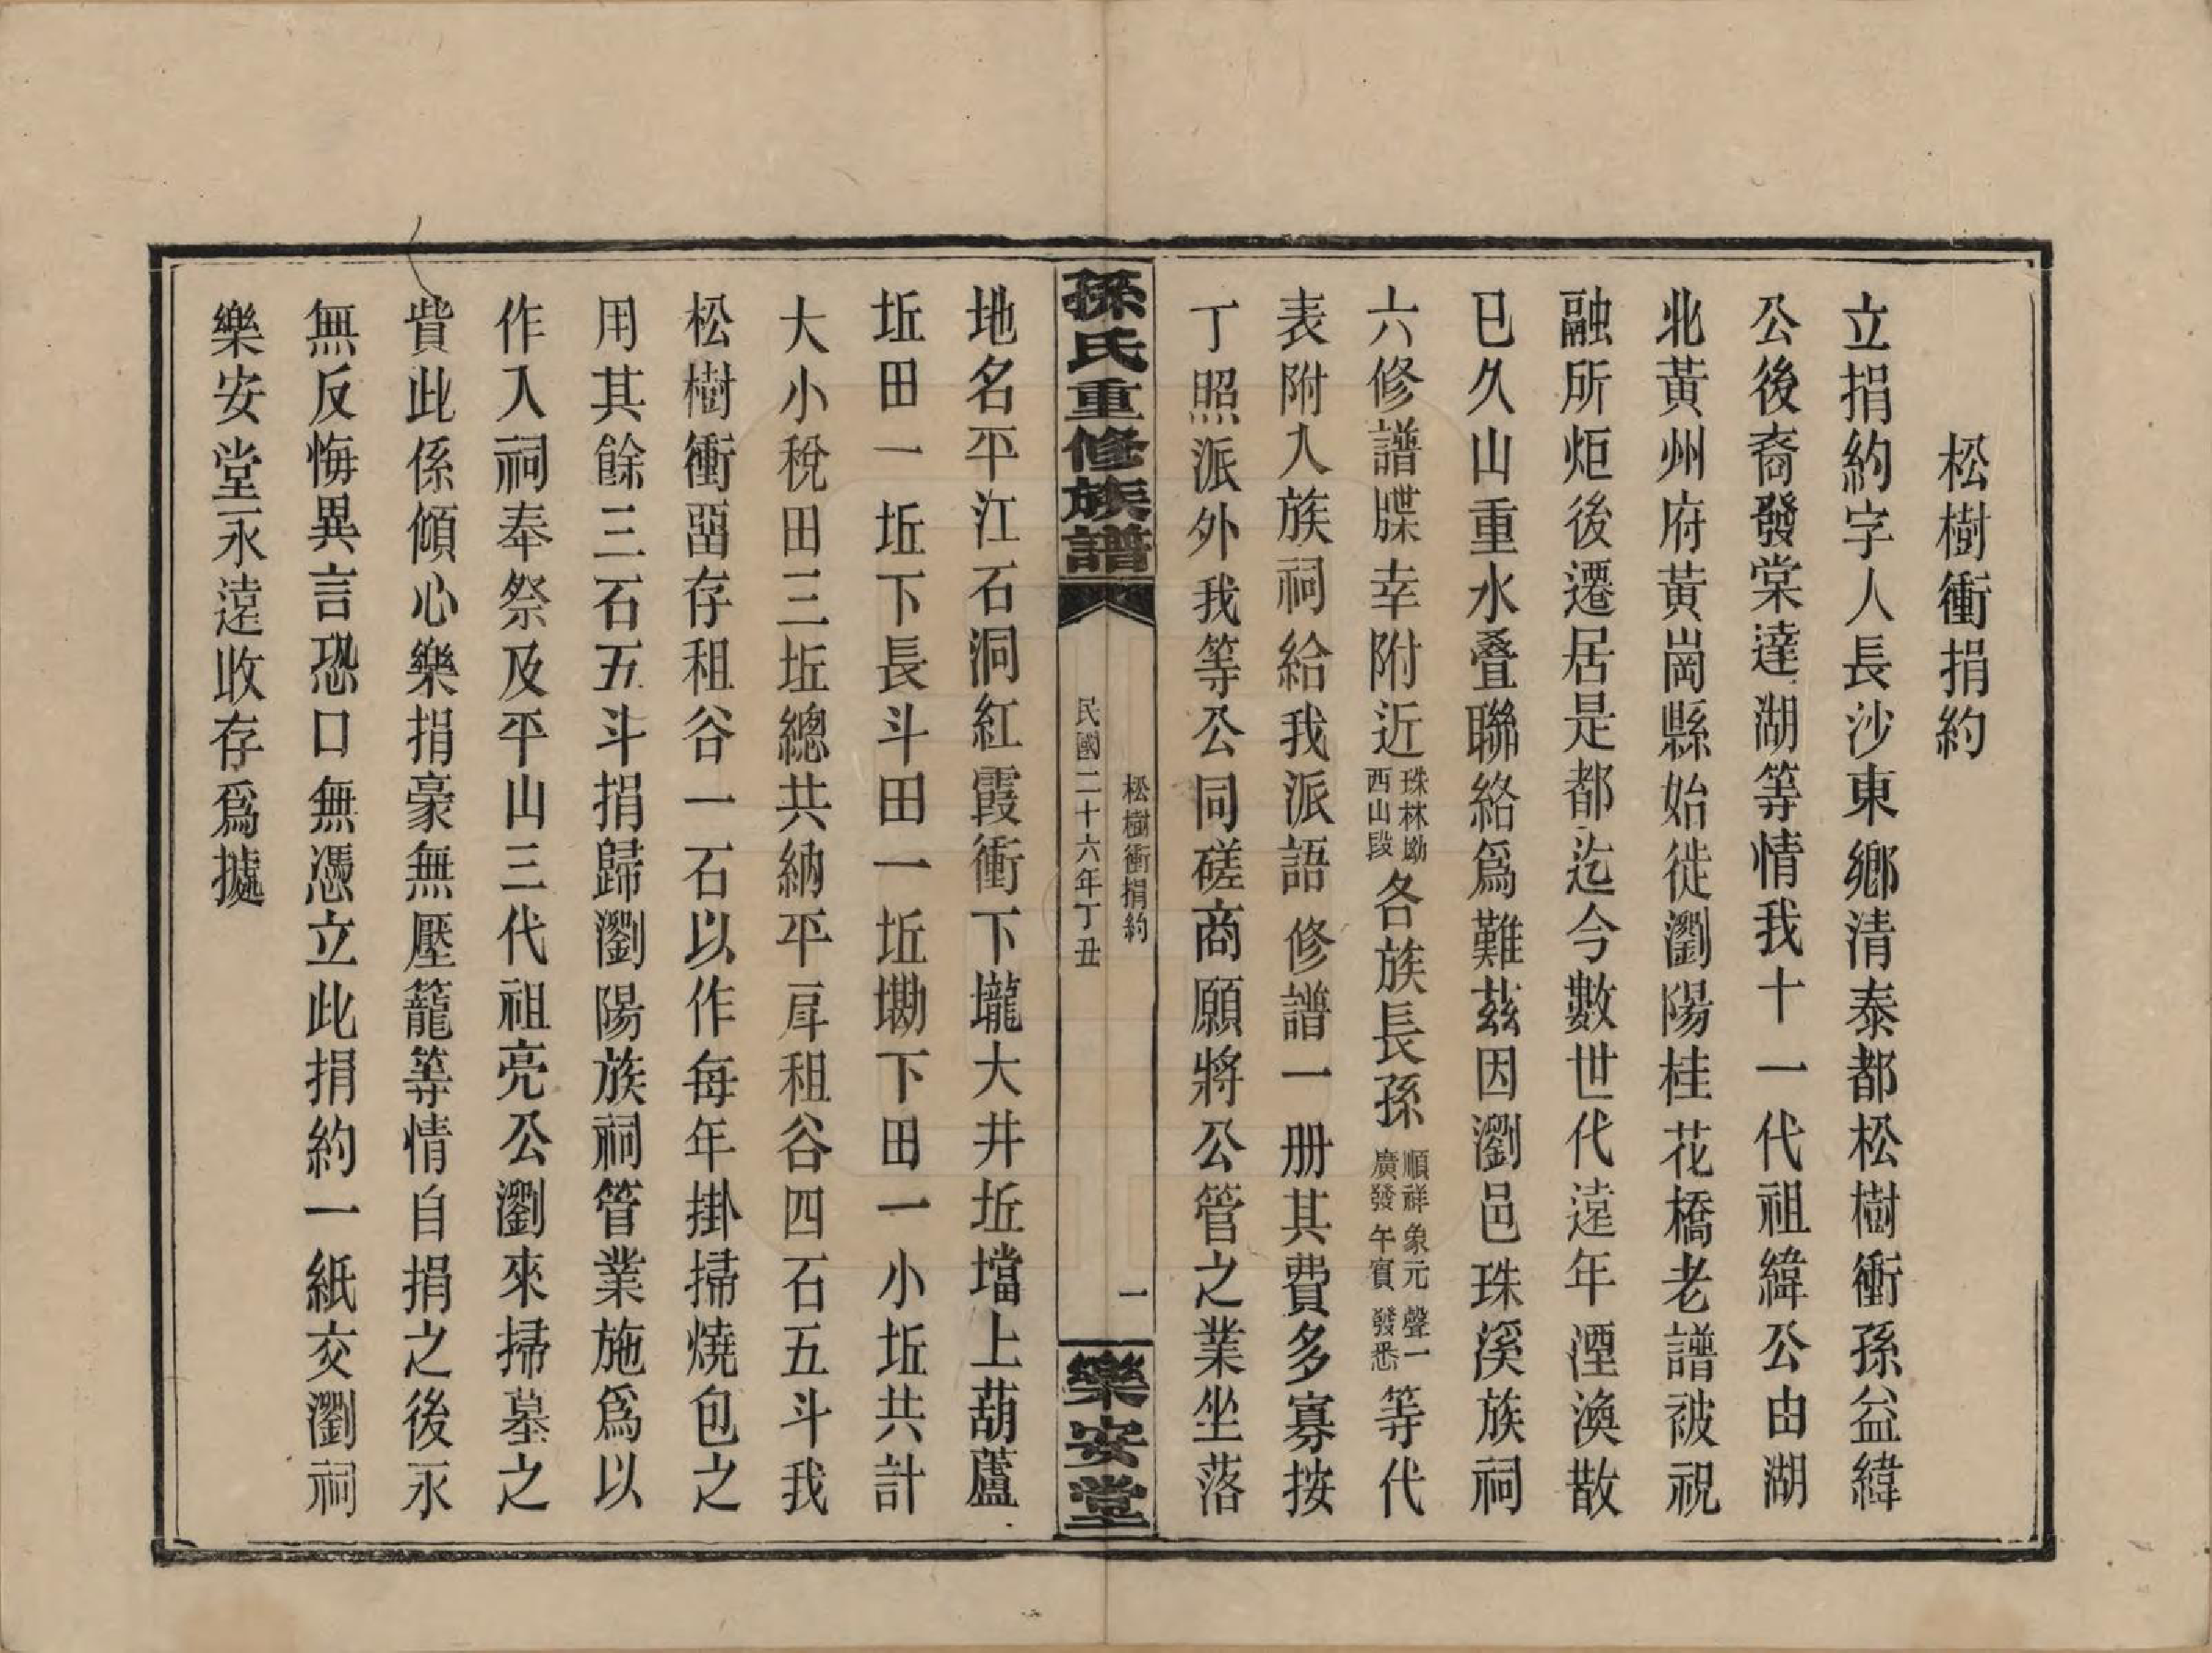 松樹衝捐約
立捐約字人長沙東鄉清泰都松樹衝孫益緯
公後裔發棠達湖等情我十一代祖緯公由湖
北黃州府黃崗縣始徙瀏陽桂花橋老譜被祝
融所炬後遷居是都迄今數世代遠年湮渙散
已久山重水叠聯絡爲難茲因瀏邑珠溪族祠
六修譜牒幸附近珠林坳西山段各族長孫順祥廣發象元午賓聲一發悉等代
表附入族祠給我派語修譜一册其費多寡按
丁照派外我等公同磋商願將公管之業坐落
孫氏重修族譜
松樹衝捐約
一
民國二十六年丁丑
樂安堂
地名平江石洞紅霞衝下壠大井坵壋上葫蘆
坵田一坵下長斗田一坵墈下田一小坵共計
大小稅田三坵總共納平斛租谷四石五斗我
松樹衝畱存租谷一石以作每年掛掃燒包之
用其餘三石五斗捐歸瀏陽族祠管業施爲以
作入祠奉祭及平山三代祖亮公瀏來掃墓之
貲此係傾心樂捐豪無壓籠等情自捐之後永
無反悔異言恐口無憑立此捐約一紙交瀏祠
樂安堂永遠收存爲據